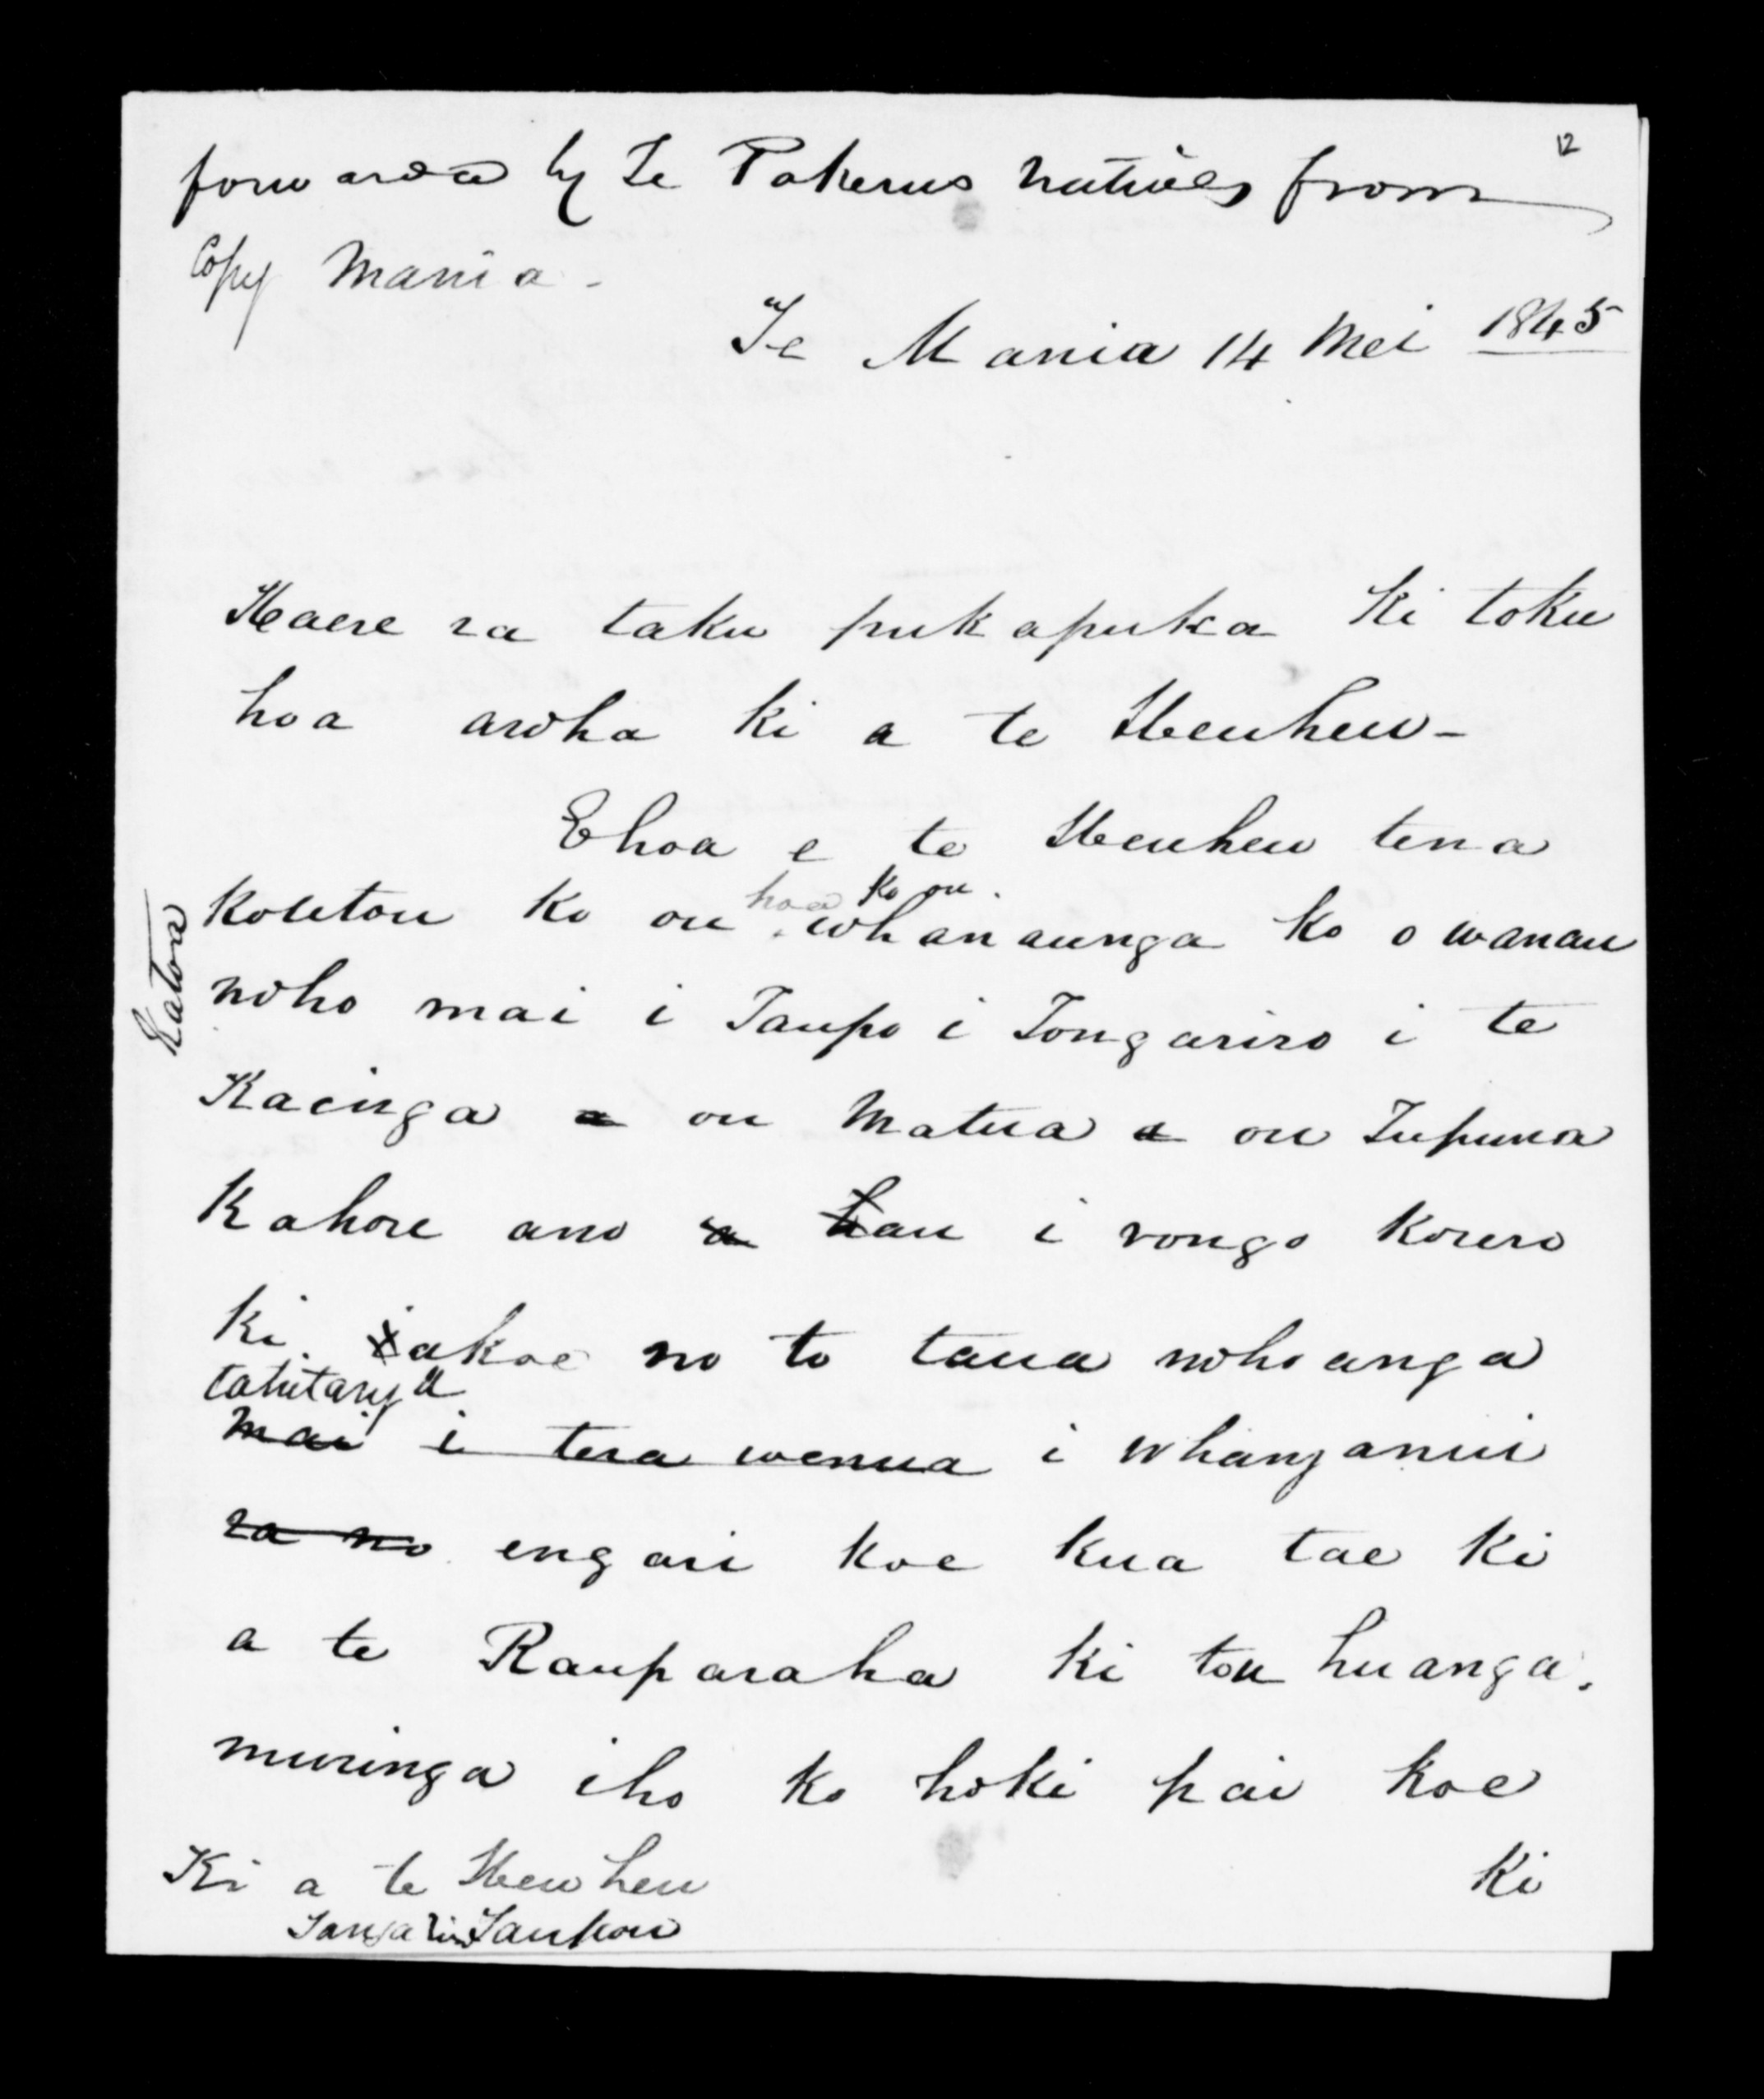 12
forwarded by Te Pakerus natives from
Copy Mania -
Te Mania 14 Mei 1845
Haere ra taku pukapuka ki toku
hoa aroha ki a te Heuheu -
Ehoa e te Heuheu tena
hoa ko ou
koutou ko ou whanaunga ko o wanau
Katoa
noho mai i Taupo i Tongariro i te
Kainga a ou Matua a ou Tupuna
Kahore ano a hau i rongo korero
ki iakoe no to taua nohoanga
tahitanga
mai i tera wenua i Whanganui
ra no engari koe kua tae ki
a te Rauparaha ki tou huanga.
muringa iho ko hoki pai koe
ki
Ki a te Heuheu
Taupou